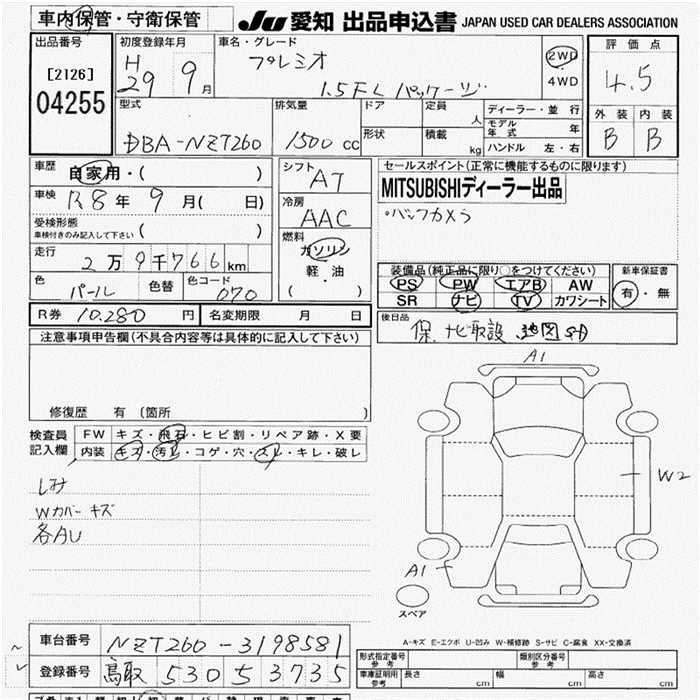 車内保管・守衛保管
JU 愛知 出品申込書 JAPAN USED CAR DEALERS ASSOCIATION
出品番号
[2126]
04255
初度登録年月
H 29 9月
車名・グレード
プレミオ
1.5FL パッケージ
2WD
4WD
評価点
4.5
外装 内装
B B
型式
DBA-NZT260
排気量
1500 cc
ドア
形状
定員 人
積載 kg
ディーラー・並行
モデル年式 年
ハンドル 左・右
車歴
自家用・( )
車検
R8年 9月( 日)
受検形態
車検付きのみ記入して下さい ( )
走行
2万9千766km
色
パール
色替
色コード
070
シフト
AT
冷房
AAC
燃料
ガソリン
軽・油
( )
セールスポイント(正常に機能するものに限ります)
MITSUBISHIディーラー出品
・バックカメラ
装備品(純正品に限り○をつけてください)
PS PW エアB AW
SR ナビ TV カワシート
新車保証書
有・無
R券 10.280 円
名変期限 月 日
後日品
保、ナビ取説 地図SD
注意事項申告欄(不具合内容等は具体的に記入して下さい)
修復歴 有 (箇所 )
検査員記入欄
FW キズ・飛石・ヒビ割・リペア跡・X要
内装 キズ・汚レ・コゲ・穴・スレ・キレ・破レ
しみ
Wカバーキズ
各AU
A1
W2
A1
スペア
A-キズ E-エクボ U-凹み W-補修跡 S-サビ C-腐食 XX-交換済
車台番号 NZT260-3198581
登録番号 鳥取 530 さ 3735
形式指定番号 参考
類別区分番号 参考
車庫証明用 参考
長さ cm
幅 cm
高さ cm